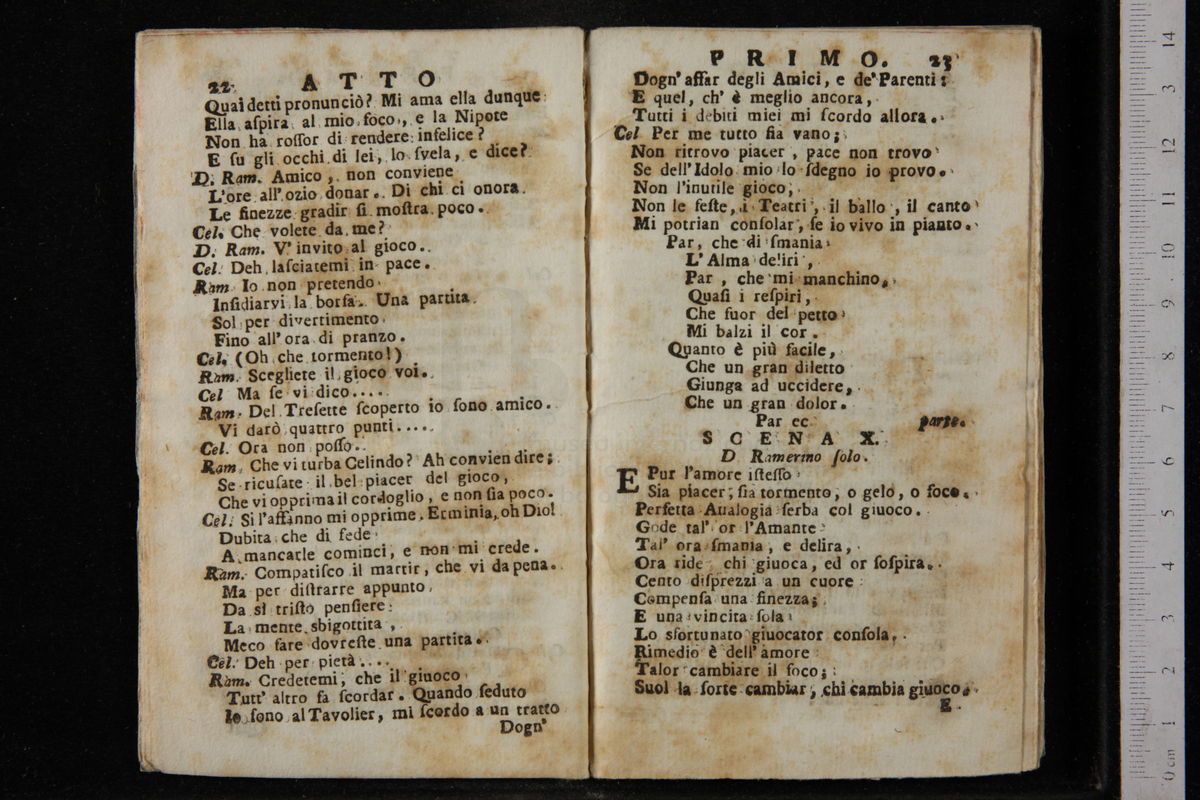 22. ATTO
Quai detti pronunciò? Mi ama ella dunque
Ella aſpira al mio foco, e la Nipote
Non ha roſſor di rendere infelice?
E ſu gli occhi di lei, lo ſvela, e dice?
D. Ram. Amico, non conviene
L'ore all'ozio donar. Di chi ci onora
Le finezze gradir ſi moſtra poco.
Cel. Che volete da me?
D. Ram. V'invito al gioco.
Cel. Deh laſciatemi in pace.
Ram. Io non pretendo
Inſidiarvi la borſa. Una partita
Sol per divertimento
Fino all'ora di pranzo.
Cel. (Oh che tormento!)
Ram. Scegliete il gioco voi.
Cel Ma ſe vi dico....
Ram. Del Treſette ſcoperto io ſono amico.
Vi darò quattro punti....
Cel. Ora non poſſo.
Ram. Che vi turba Celindo? Ah convien dire;
Se ricuſate il bel piacer del gioco,
Che vi opprima il cordoglio, e non ſia poco.
Cel. Sì l'affanno mi opprime. Erminia, oh Dio!
Dubita che di fede
A mancarle cominci, e non mi crede.
Ram. Compatiſco il martir, che vi da pena.
Ma per diſtrarre appunto
Da sì triſto penſiere
La mente sbigottita,
Meco fare dovreſte una partita.
Cel. Deh per pietà....
Ram. Credetemi, che il giuoco
Tutt' altro fa ſcordar. Quando ſeduto
Io ſono al Tavolier, mi ſcordo a un tratto
Dogn'
PRIMO. 23
Dogn' affar degli Amici, e de' Parenti:
E quel, ch' è meglio ancora,
Tutti i debiti miei mi ſcordo allora.
Cel Per me tutto ſia vano;
Non ritrovo piacer, pace non trovo
Se dell'Idolo mio lo ſdegno io provo.
Non l'inutile gioco,
Non le feſte, i Teatri, il ballo, il canto
Mi potrian conſolar, ſe io vivo in pianto.
Par, che di ſmania
L'Alma deliri,
Par, che mi manchino,
Quaſi i reſpiri,
Che fuor del petto
Mi balzi il cor.
Quanto è più facile,
Che un gran diletto
Giunga ad uccidere,
Che un gran dolor.
Par ec. parte.
SCENA X.
D. Ramerino ſolo.
EPur l'amore iſteſſo
Sia piacer, ſia tormento, o gelo, o foco.
Perfetta Aualogia ſerba col giuoco.
Gode tal' or l'Amante
Tal' ora ſmania, e delira,
Ora ride chi giuoca, ed or ſoſpira.
Cento diſprezzi a un cuore
Compenſa una finezza;
E una vincita ſola
Lo sfortunato giuocator conſola.
Rimedio è dell'amore
Talor cambiare il foco;
Suol la ſorte cambiar, chi cambia giuoco.
E